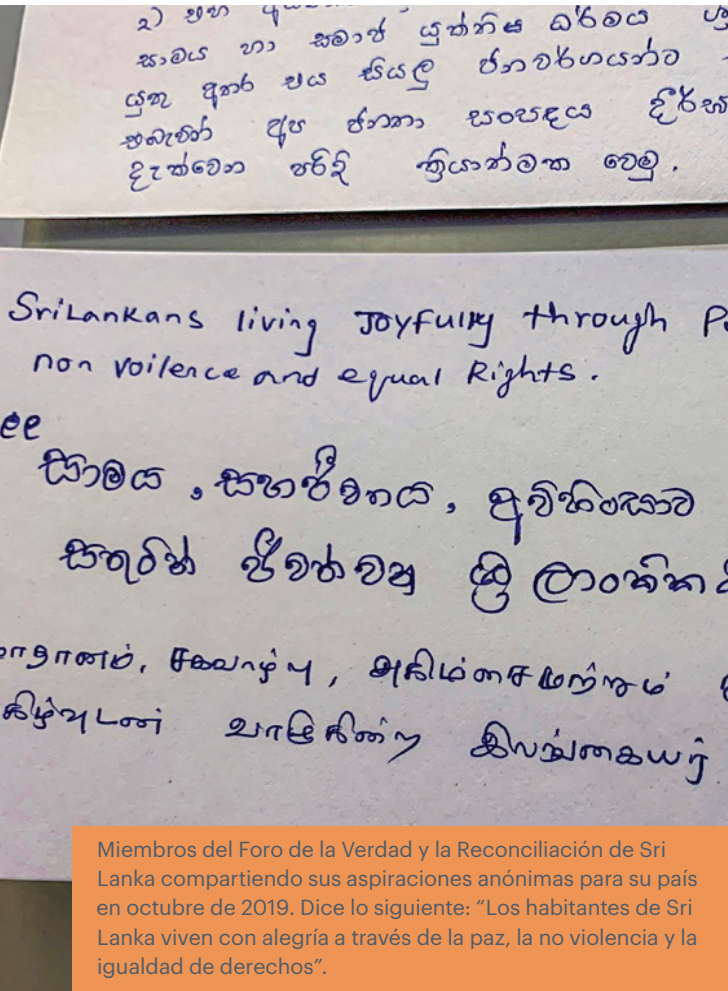 2) එහ
සාමය හා සමාජ යුක්තිය ධර්මය
යුතු අතර එය සියලු ජනවර්ගයන්ට
එබැවින් අප ජනතා සංසඳය දීර්ඝ
දැක්වෙන පරිදි ක්‍රියාත්මක වෙමු.
SriLankans living Joyfully through P
non voilence and equal Rights.
ee
සාමය, සහජීවනය, අවිහිංසාව
සතුටින් ජීවත් වන ශ්‍රී ලාංකික
மாதானம், சகவாழ்வு, அகிம்சை மற்றும்
கிழ்வுடன் வாழுகின்ற இலங்கையர்
Miembros del Foro de la Verdad y la Reconciliación de Sri
Lanka compartiendo sus aspiraciones anónimas para su país
en octubre de 2019. Dice lo siguiente: “Los habitantes de Sri
Lanka viven con alegría a través de la paz, la no violencia y la
igualdad de derechos”.